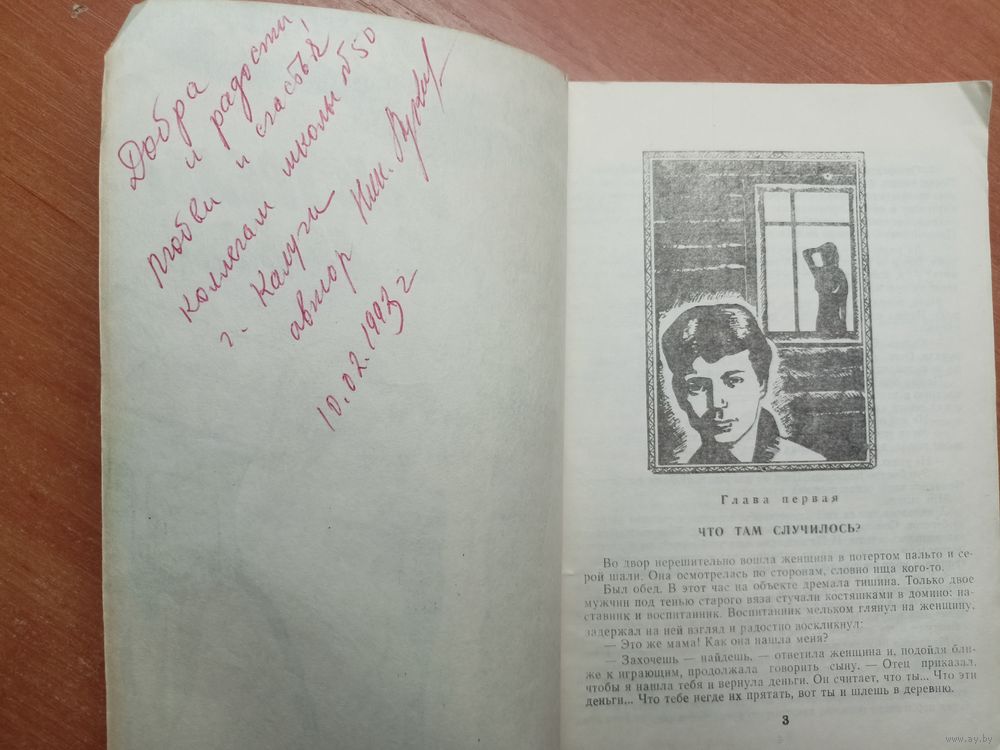 Добра
и радости,
любви и счастья
коллегам школы №50
г. Калуги
автор Ник.
10.02.1993 г
Глава первая
ЧТО ТАМ СЛУЧИЛОСЬ?
Во двор нерешительно вошла женщина в потертом пальто и се-
рой шали. Она осмотрелась по сторонам, словно ища кого-то.
Был обед. В этот час на объекте дремала тишина. Только двое
мужчин под тенью старого вяза стучали костяшками в домино: на-
ставник и воспитанник. Воспитанник мельком глянул на женщину,
задержал на ней взгляд и радостно воскликнул:
— Это же мама! Как она нашла меня?
— Захочешь — найдешь, — ответила женщина и, подойдя бли-
же к играющим, продолжала говорить сыну. — Отец приказал,
чтобы я нашла тебя и вернула деньги. Он считает, что ты... Что эти
деньги... Что тебе негде их прятать, вот ты и шлешь в деревню.
3
www.ay.by